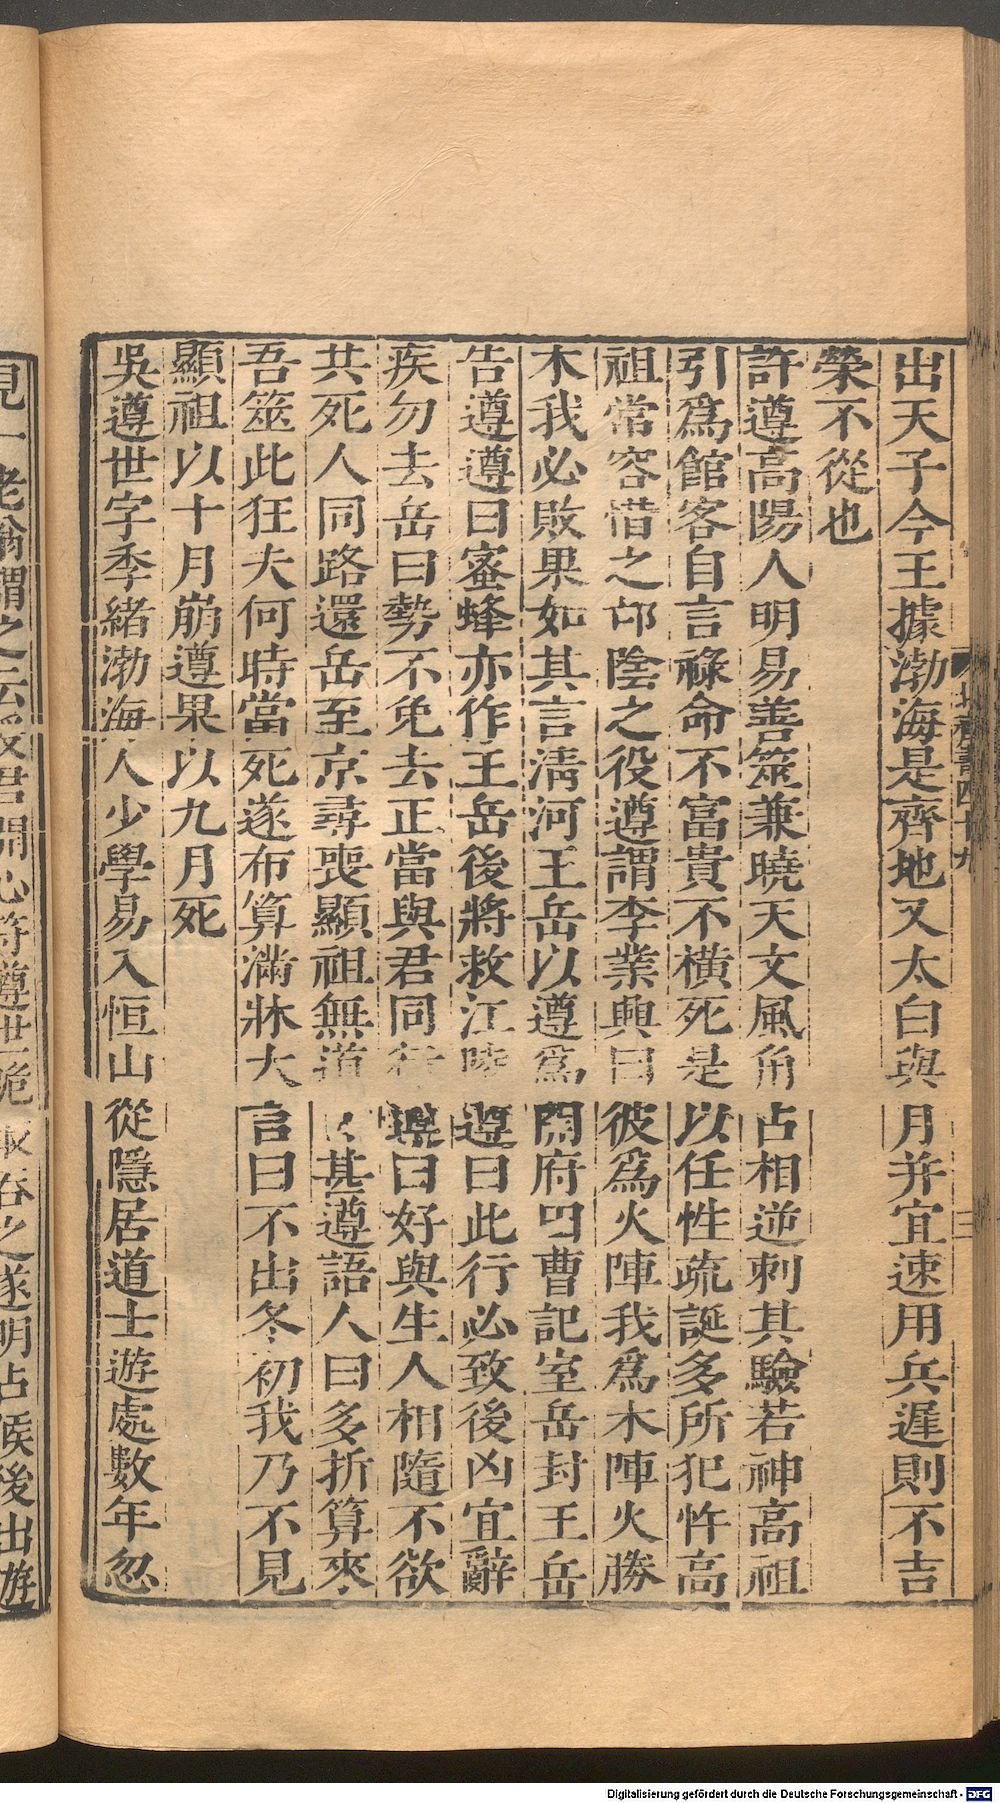 出天子今王據渤海是齊地又太白與月并宜速用兵遲則不吉
榮不從也
許遵高陽人明易善筮兼曉天文風角占相逆刺其驗若神高祖
引爲館客自言祿命不富貴不橫死是以任性疏誕多所犯忤高
祖常容惜之邙陰之役遵謂李業興曰彼爲火陣我爲木陣火勝
木我必敗果如其言淸河王岳以遵爲開府四曹記室岳封王岳
告遵遵曰蜜蜂亦作王岳後將救江陵遵曰此行必致後凶宜辭
疾勿去岳曰勢不免去正當與君同行遵曰好與生人相隨不欲
共死人同路還岳至京尋喪顯祖無道甚遵語人曰多折算來
吾筮此狂夫何時當死遂布算滿牀大言曰不出冬初我乃不見
顯祖以十月崩遵果以九月死
吳遵世字季緒渤海人少學易入恒山從隱居道士遊處數年忽
北齊書四十九
三
見一老翁謂之云 君開心符遵世跪 吞之遂明占候後出遊
Digitalisierung gefördert durch die Deutsche Forschungsgemeinschaft - DFG